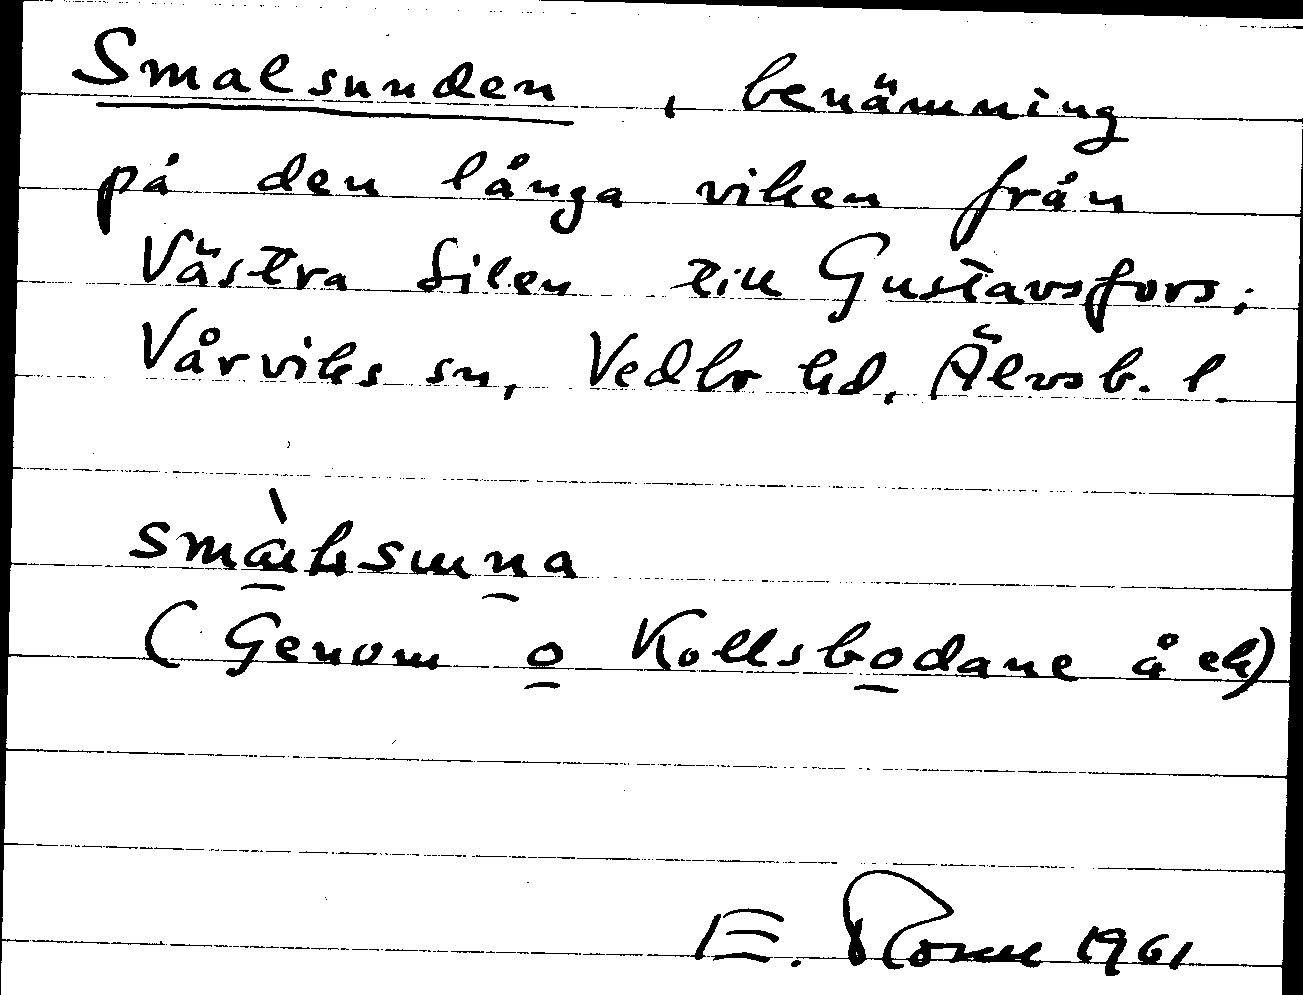 Smalsunden, benämning
på den långa viken från
Västra Silen till Gustavsfors;
Vårviks sn, Vedbo hd, Älvsb. l.
(Genom o Kollsbodane å ek)
E. 1961